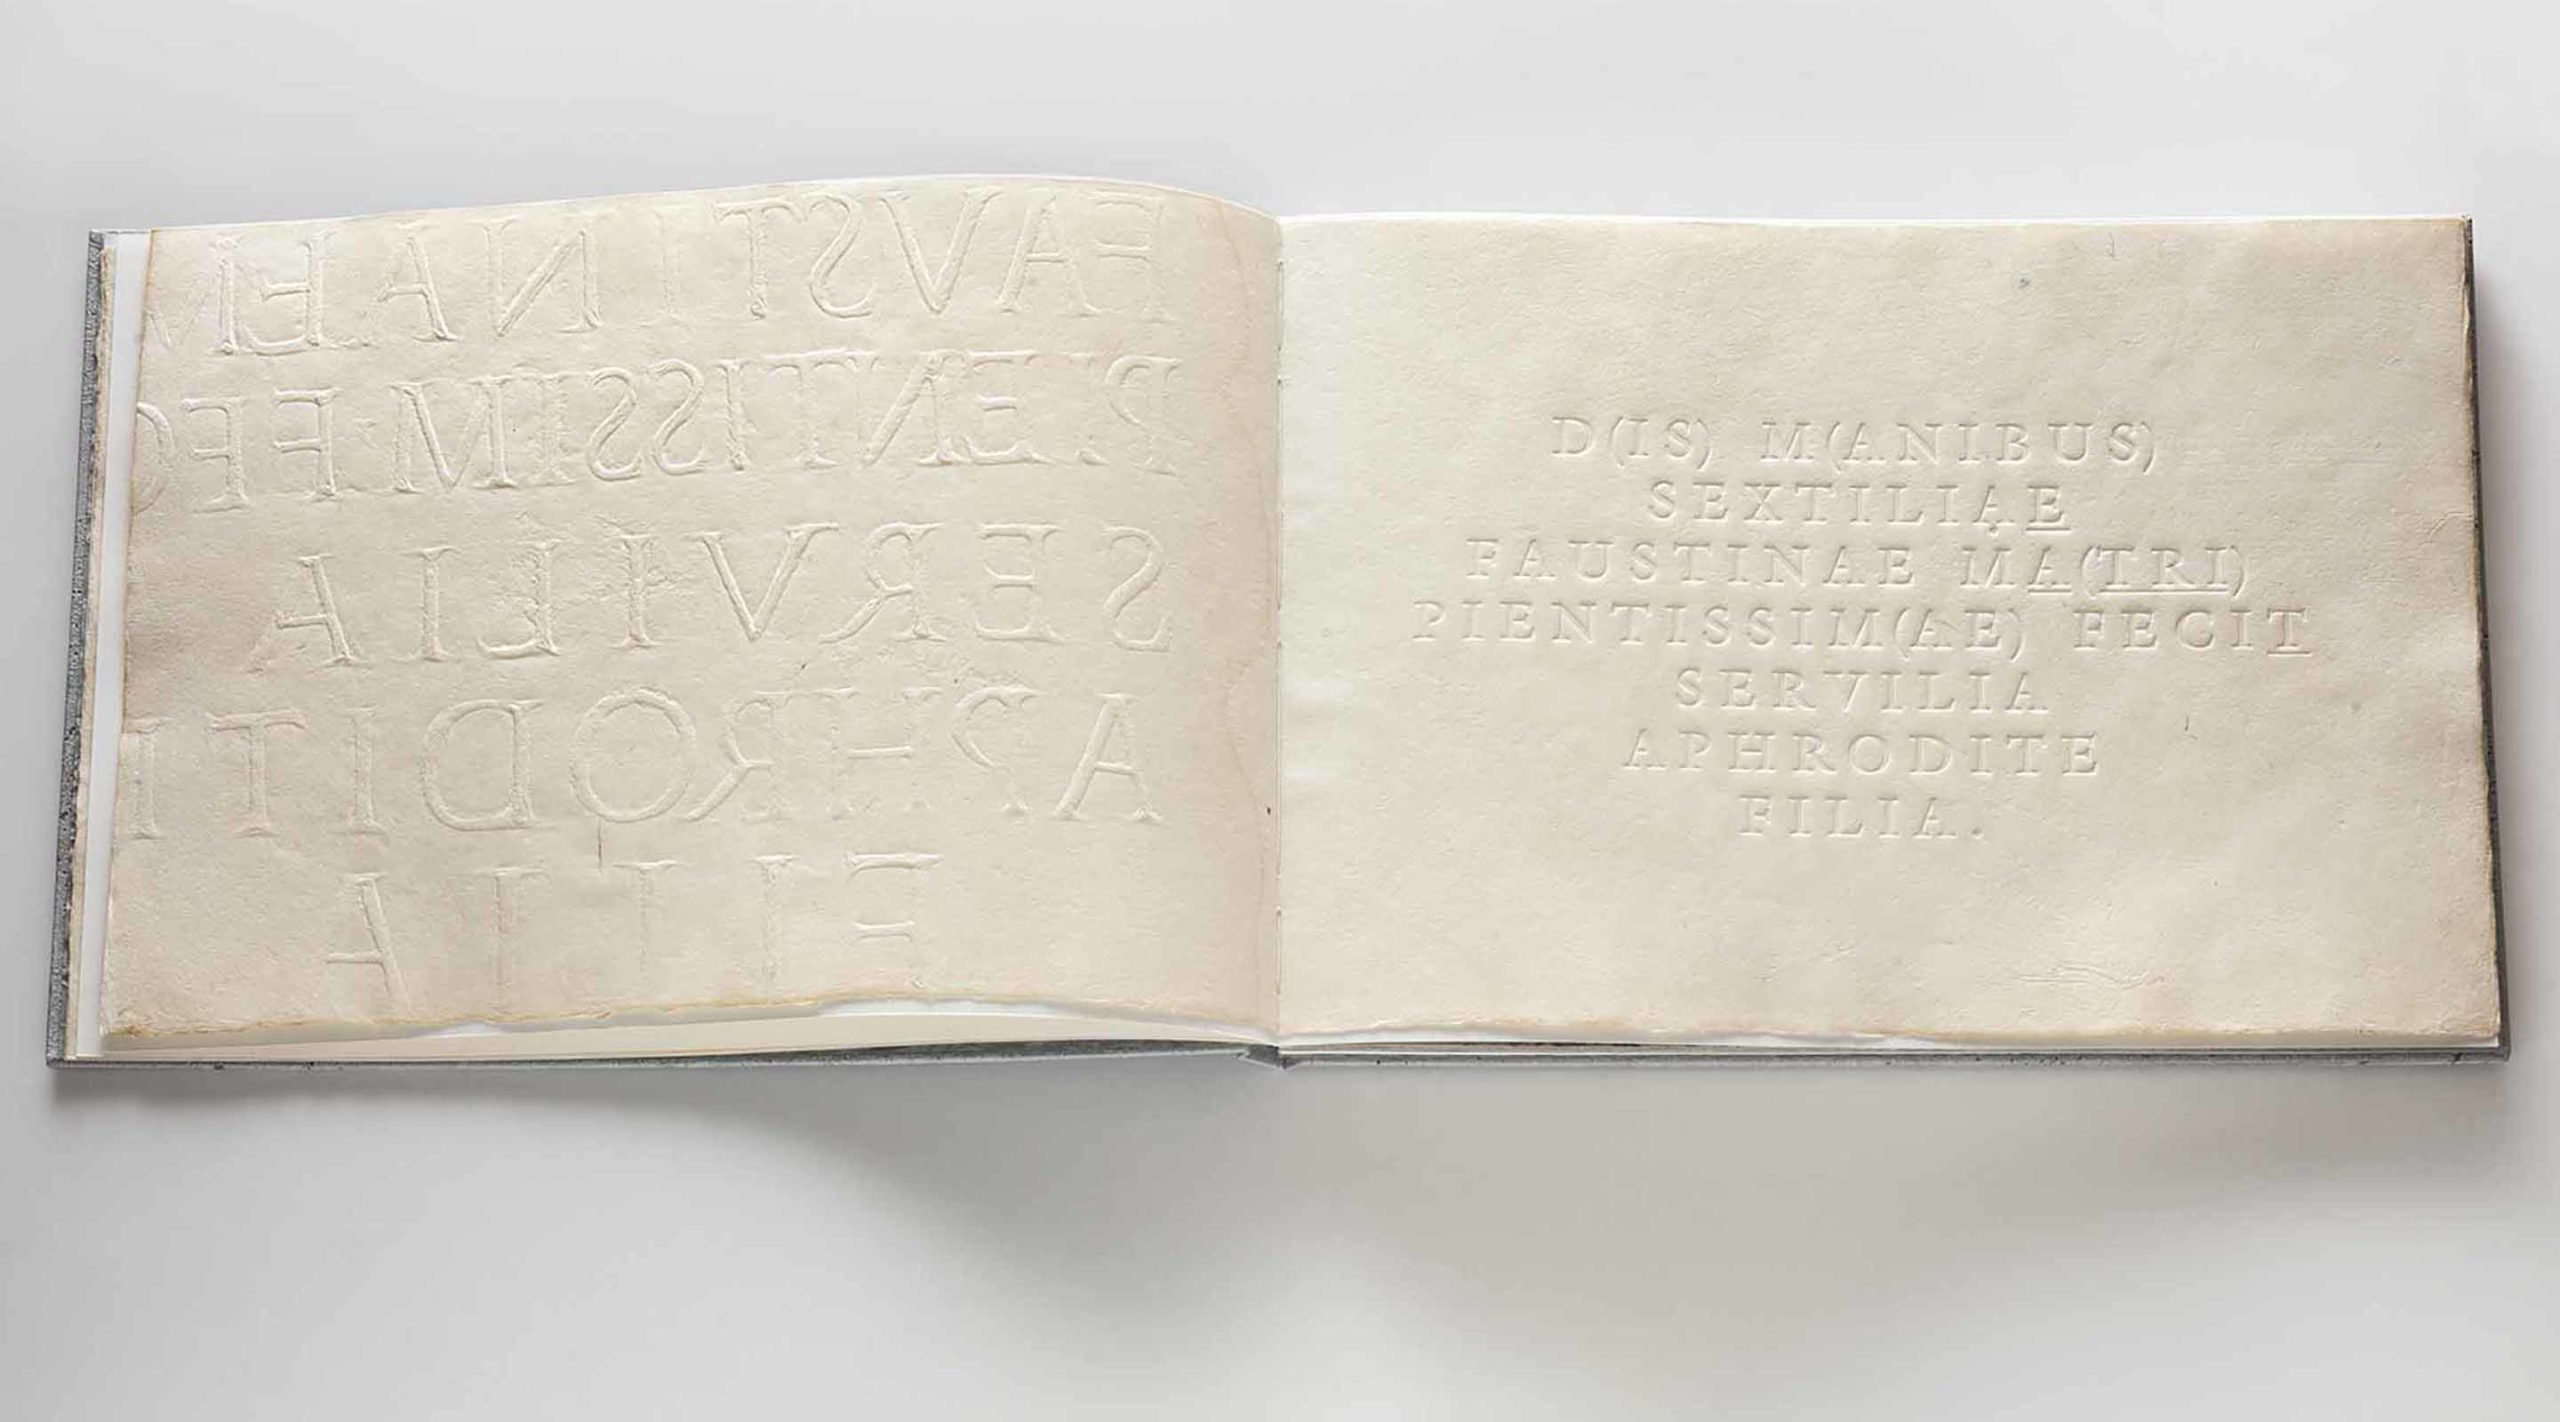 FAVSTINAE M
PIENTISSIM·FEC
SERVILIA
APHRODIT
FILIA
D(IS) M(ANIBUS)
SEXTILIAE
FAUSTINAE MA(TRI)
PIENTISSIM(AE) FECIT
SERVILIA
APHRODITE
FILIA.